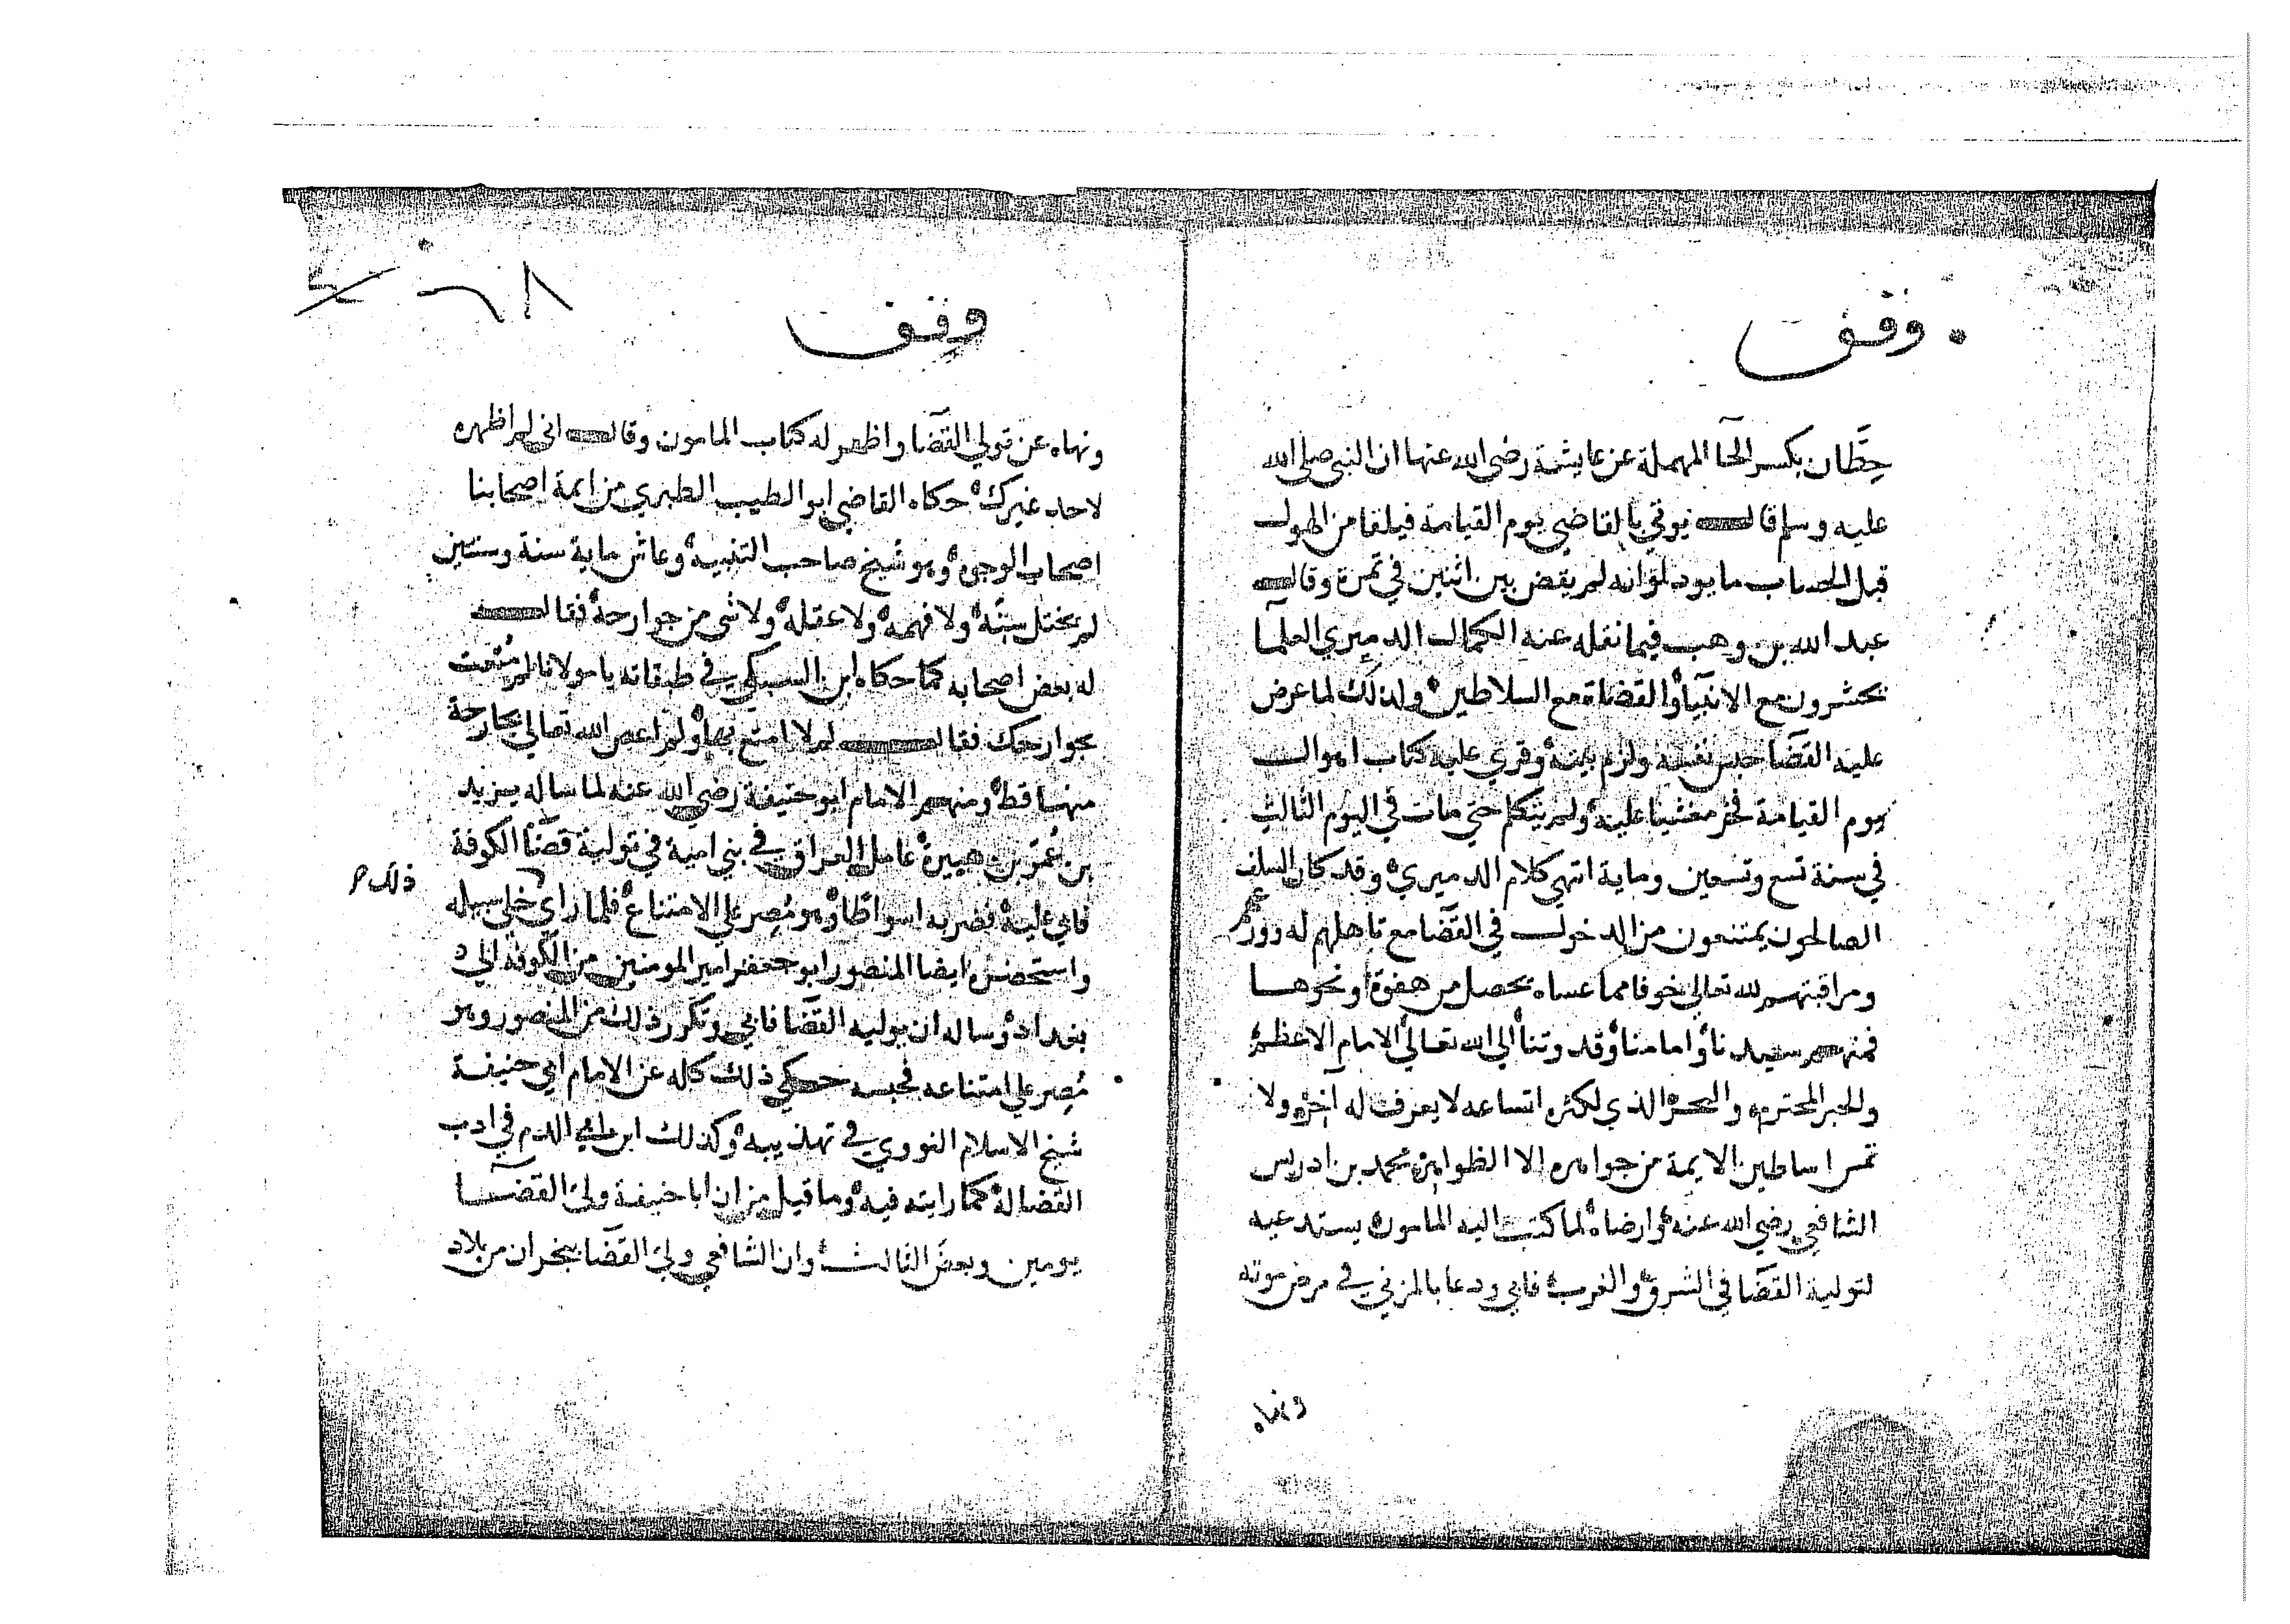 وقف
حِطَّان بكسر الحآ المهملة عن عايشة رضى الله عنها ان النبى صلى الله
عليه وسلم قال يوتي بالقاضي يوم القيامة فيلقا من الهول
قبل الحساب ما يود لو انه لم يقض بين اثنين في تمرة وقال
عبد الله بن وهب فيما نقله عنه الكمال الدميري العلمآ
تحشرون مع الانبيآ والقضاة مع السلاطين ولذلك لما عرض
عليه القضآ حبس نفسه ولزم بيته وقري عليه كتاب اهوال
يوم القيامة فخر مغشيا عليه ولم يتكلم حتي مات في اليوم الثالث
في سنة تسع وتسعين وماية انتهي كلام الدميري وقد كان السلف
الصالحون يمتنعون من الدخول في القضآ مع تاهلهم له وورعهم
ومراقبتهم لله تعالي خوفا مما عساه يحصل من هفوة او نحوها
فمنهم سيدنا وامامنا وقدوتنا الي الله تعالي الامام الاعظم
والحبر المحترم والبحر الذي لكثرة اتساعه لا يعرف له اخر ولا
تمس اساطين الايمة من جواهره الا الظواهر محمد بن ادريس
الشافعي رضي الله عنه وارضاه لما كتب اليه المامون يستدعيه
لتولية القضآ في الشرق والغرب فابي ودعا بالمزني في مرض موته
ونهاه
وقف
ونهاه عن تولي القضآ واظهر له كتاب المامون وقال اني لم اظهره
لاحد غيرك حكاه القاضي ابو الطيب الطبري من ايمة اصحابنا
اصحاب الوجوه وهو شيخ صاحب التنبيه وعاش ماية سنة وسنتين
لم يختل سنه ولا فهمه ولا عقله ولا شى من جوارحه فقال
له بعض اصحابه كما حكاه ابن السبكي في طبقاته يا مولانا لم مُتعت
بجوارحك فقال لم لا امتع بها ولم اعص الله تعالي بجارحة
منها قط ومنهم الامام ابو حنيفة رضي الله عنه لما ساله يزيد
بن عُمَر بن هبيرة عامل العراق في بني امية في تولية قضآ الكوفة
فابي عليه فضربه اسواطا وهو مُصِر علي الامتناع فلما راي خلي سبيله
ذلك
واستحضره ايضا المنصور ابو جعفر امير المومنين من الكوفة الي
بغداد وساله ان يوليه القضآ فابي وتكرر ذلك من المنصور وهو
مُصِر علي امتناعه فحبسه حكي ذلك كله عن الامام ابي حنيفة
شيخ الاسلام النووي في تهذيبه وكذلك ابن ابي الدم في ادب
القضا له كما رايته فيه وما قيل من ان ابا حنيفة ولي القضآ
يومين وبعض الثالث وان الشافعي ولي القضآ بنجران من بلاد